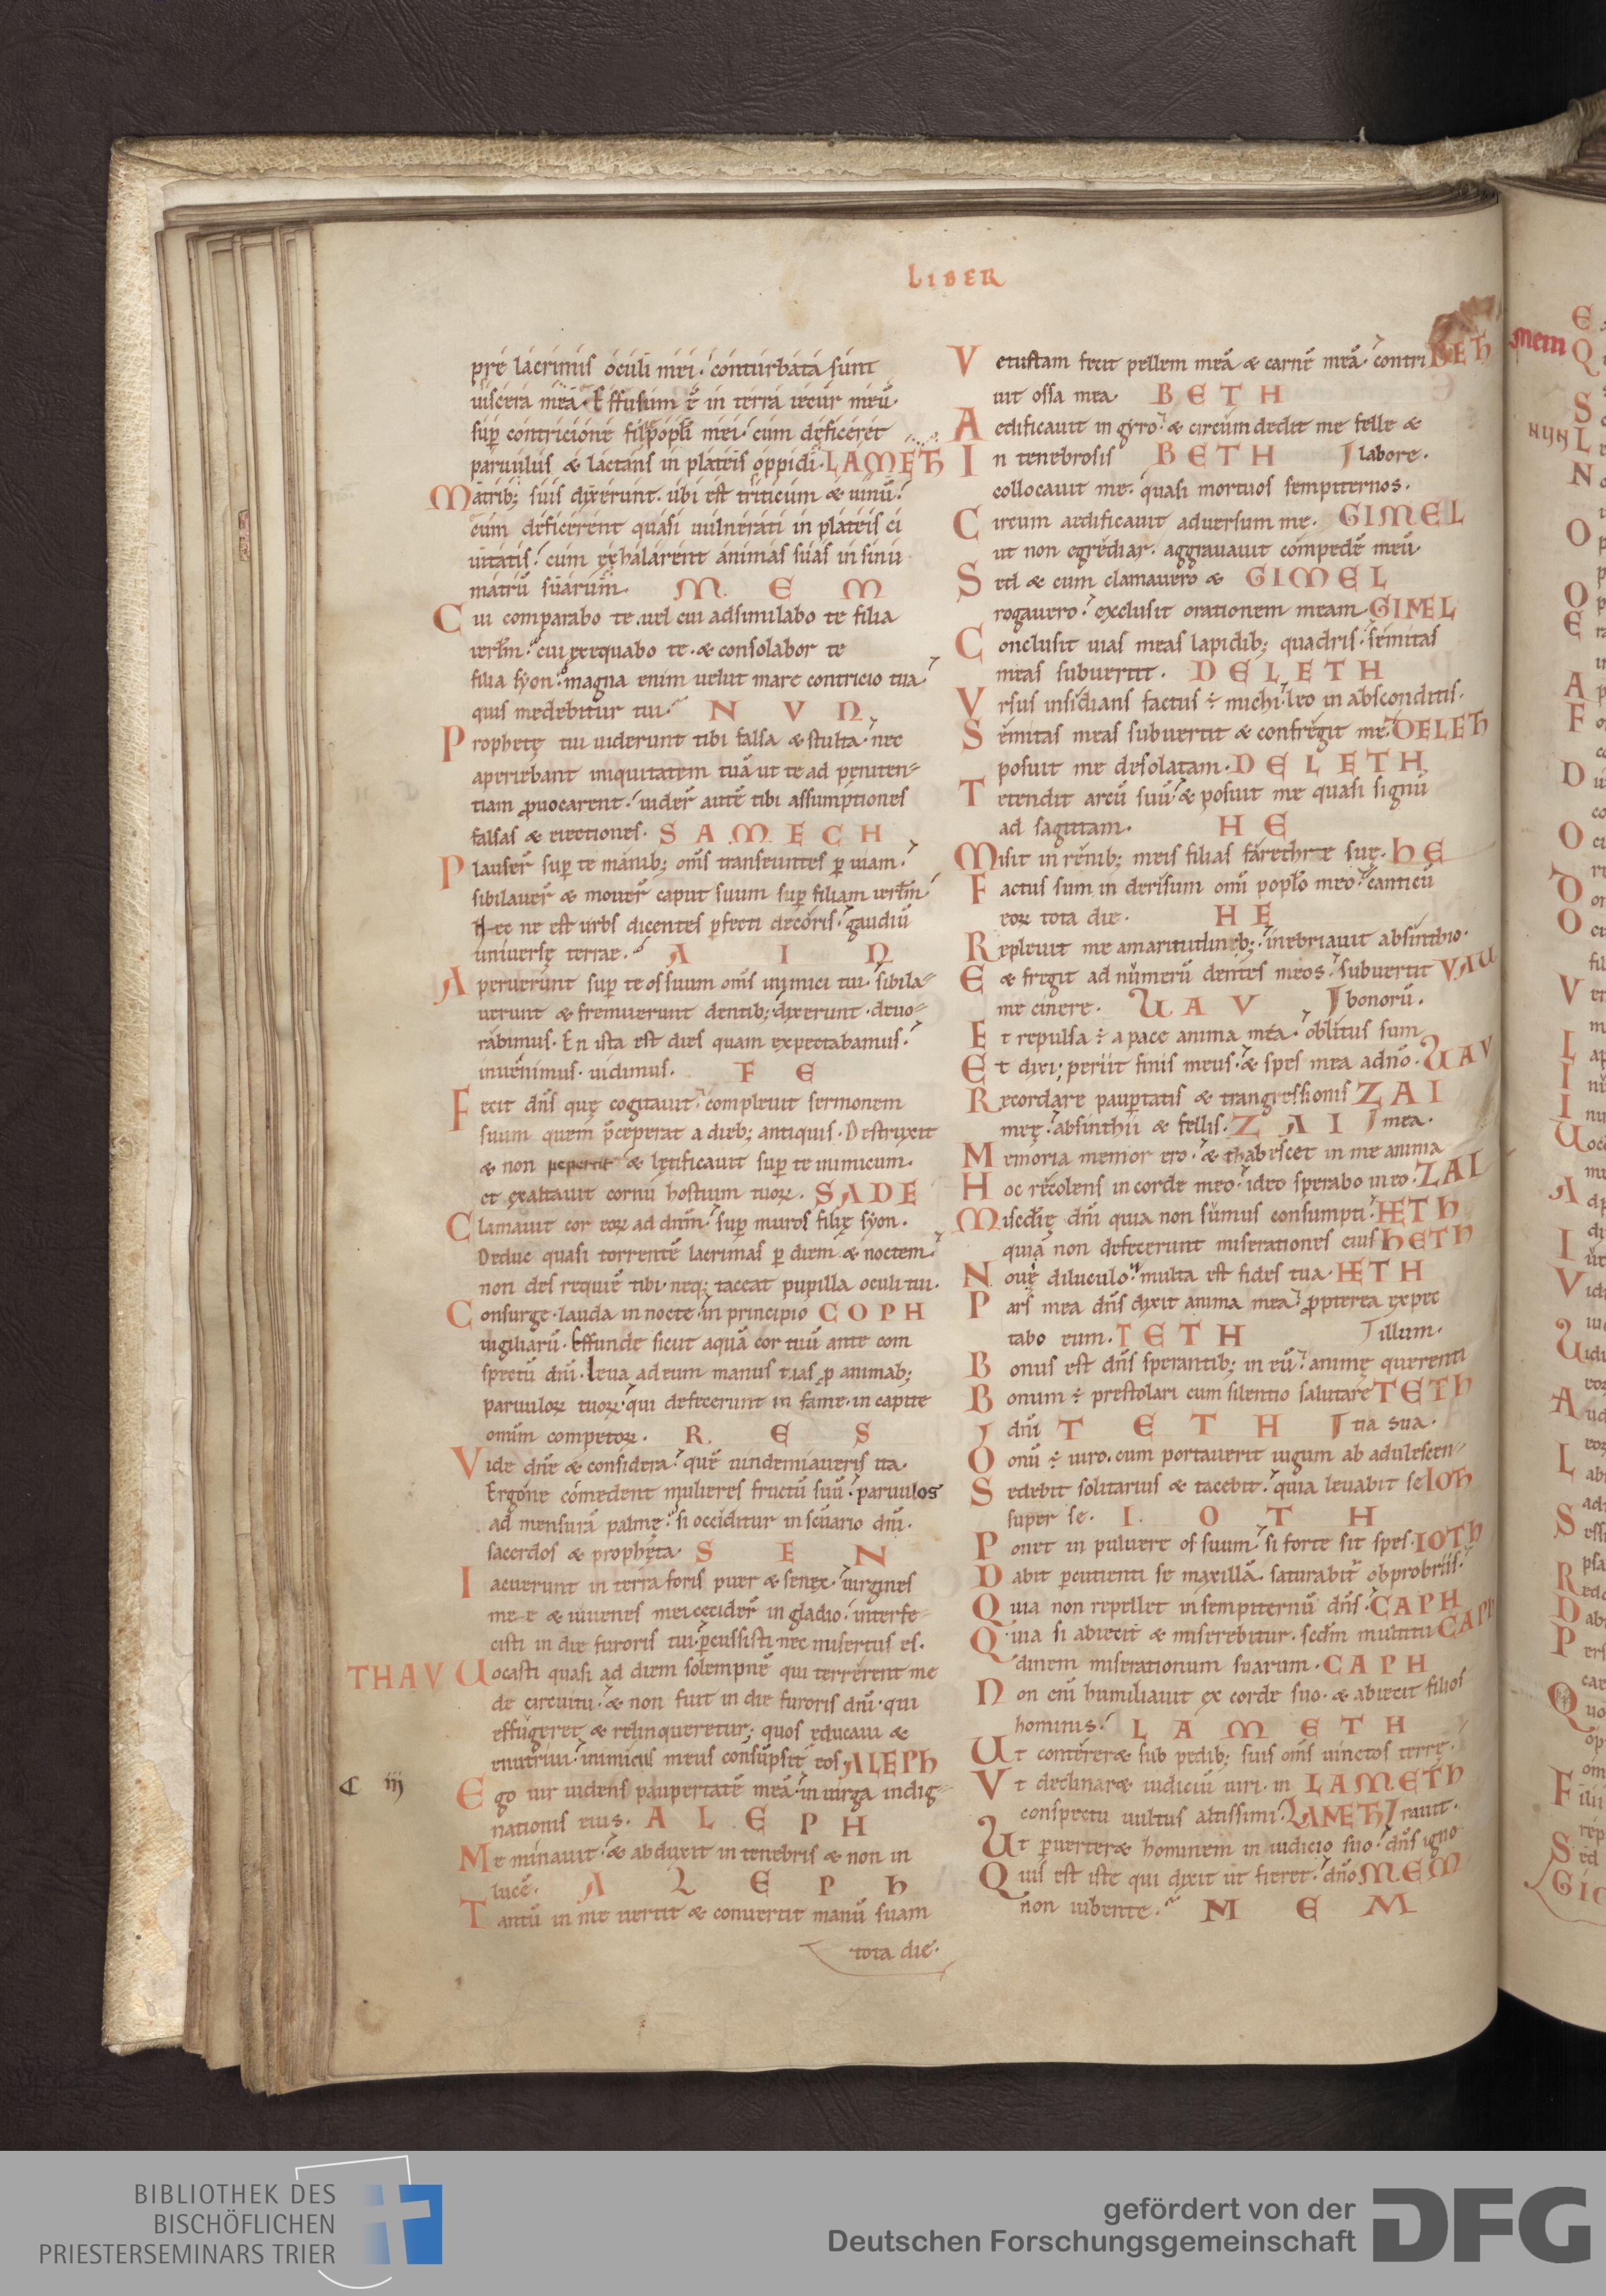 LIBER
pre lacrimis oculi mei. conturbata sunt
uiscera mea. Effusum ē in terra iecur meū.
sup contricione filię popli mei. cum deficeret
paruulus & lactans in plateis oppidi. LAMETH
Matrib; suis dixerunt. ubi est triticum & uinū?
cum deficerent quasi uulnerati in plateis ci
uitatis. cum exhalarent animas suas in sinu
matrū suarum. M E M
Cui comparabo te. uel cui adsimilabo te filia
ierłm. cui exequabo te. & consolabor te
filia syon. magna enim uelut mare contricio tua
quis medebitur tui. N V N
Prophetę tui uiderunt tibi falsa & stulta. nec
aperiebant iniquitatem tuā ut te ad peniten-
tiam ꝓuocarent. uider̄ autē tibi assumptiones
falsas & eiectiones. SAMECH
Plauser̄ sup te manib; om̄s transeuntes ꝑ uiam.
sibilauer̄ & mouer̄ caput suum sup filiam ierłm
Hec ne est urbs dicentes ꝑfecti decoris. gaudiū
uniuersę terrae. A I N
Aperuerunt sup te os suum om̄s inimici tui. sibila-
uerunt & fremuerunt dentib; dixerunt. deuo-
rabimus. En ista est dies quam expectabamus.
inuenimus. uidimus. F E
Fecit dn̄s quę cogitauit. compleuit sermonem
suum quem p̄ceperat a dieb; antiquis. Destruxit
& non pepercit & lętificauit sup te inimicum.
et exaltauit cornu hostium tuoꝝ. SADE
Clamauit cor eoꝝ ad dnm̄. sup muros filię syon.
Deduc quasi torrentē lacrimas ꝑ diem & noctem.
non des requiē tibi. neq; taceat pupilla oculi tui.
Consurge. lauda in nocte. in principio COPH
uigiliarū. Effunde sicut aquā cor tuū ante con
spectū dn̄i. Leua ad eum manus tuas ꝓ animab;
paruuloꝝ tuoꝝ. qui defecerunt in fame. in capite
omnīm competoꝝ. R E S
Vide dn̄e & considera. quē uindemiaueris ita.
Ergone comedent mulieres fructū suū. paruulos
ad mensurā palmę. si occiditur in scūario dn̄i.
sacerdos & propheta. S E N
Iacuerunt in terra foris puer & senex. uirgines
mee & iuuenes mei ceciderꝰ in gladio. interfe-
cisti in die furoris tui. ꝑcussisti nec misertus es.
THAV Uocasti quasi ad diem solempnē qui terrerent me
de circuitu. & non fuit in die furoris dn̄i. qui
effugeret & relinqueretur; quos educaui &
enutriui. inimicus meus consūpsit eos ALEPH
C iij Ego uir uidens paupertatē meā. in uirga indig-
nationis eius. ALEPH
Me minauit. & abduxit in tenebris & non in
lucē. A L E P h
Tantū in me uertit & conuertit manū suam
tota die.
Vetustam fecit pellem meā & carnē meā. contri BETH
uit ossa mea. BETH
Aedificauit in gyro. & circumdedit me felle &
In tenebrosis BETH labore.
collocauit me. quasi mortuos sempiternos.
Circum aedificauit aduersum me. GIMEL
ut non egrediar. aggrauauit compedē meū
Sed & cum clamauero & GIMEL
rogauero. exclusit orationem meam GIMEL
Conclusit uias meas lapidib; quadris. semitas
meas subuertit. DELETH
Vrsus insidians factus ÷ michi. leo in absconditis.
Semitas meas subuertit & confregit me. DELETH
posuit me desolatam. DELETH
Tetendit arcū suū. & posuit me quasi signū
ad sagittam. HE
Misit in renib; meis filias farethrę suę. HE
Factus sum in derisum omī popło meo. canticū
eoꝝ tota die. HE
Repleuit me amaritudineb;. inebriauit absinthio.
Et fregit ad numerū dentes meos. subuertit VAU
me cinere. UAV bonorū.
Et repulsa ÷ a pace anima mea. oblitus sum
Et dixi; periit finis meus. & spes mea adnō. UAV
Recordare paupertatis & trangressionis ZAI
meę. absinthii & fellis. ZAI mea.
Memoria memor ero. & thabescet in me anima
Hoc recolens in corde meo. ideo sperabo in eo. ZAI
Misedię dn̄i quia non sumus consumpti. HETH
quia non defecerunt miserationes eius HETH
Nouę diluculo. multa est fides tua. HETH
Pars mea dn̄s dixit anima mea. ꝓpterea expec
tabo eum. TETH illum.
Bonus est dn̄s sperantib; in eū. animę querenti
Bonum ÷ prestolari cum silentio salutare TETH
dn̄i TETH tia sua.
Bonū ÷ uiro. cum portauerit iugum ab adulescen-
Sedebit solitarius & tacebit. quia leuabit se IOTH
super se. IOTH
Ponet in puluere os suum. si forte sit spes. IOTH
Dabit ꝑcutienti se maxillā. saturabit̄ obprobriis.
Quia non repellet in sempiternū dn̄s. CAPH
Quia si abiecit & miserebitur. scdm̄ multitu CAPH
dinem miserationum suarum. CAPH
Non enī humiliauit ex corde suo. & abiecit filios
hominis. LAMETH
Ut contereret sub pedib; suis om̄s uinctos terrę.
Vt declinaret iudiciū uiri. in LAMETH
conspectu uultus altissimi. LAMETH rauit.
Ut ꝑuerteret hominem in iudicio suo. dn̄s igno
Quis est iste qui dixit ut fieret. dn̄o MEM
non iubente. MEM
mem
NUN
BIBLIOTHEK DES
BISCHÖFLICHEN
PRIESTERSEMINARS TRIER
gefördert von der
Deutschen Forschungsgemeinschaft
DFG